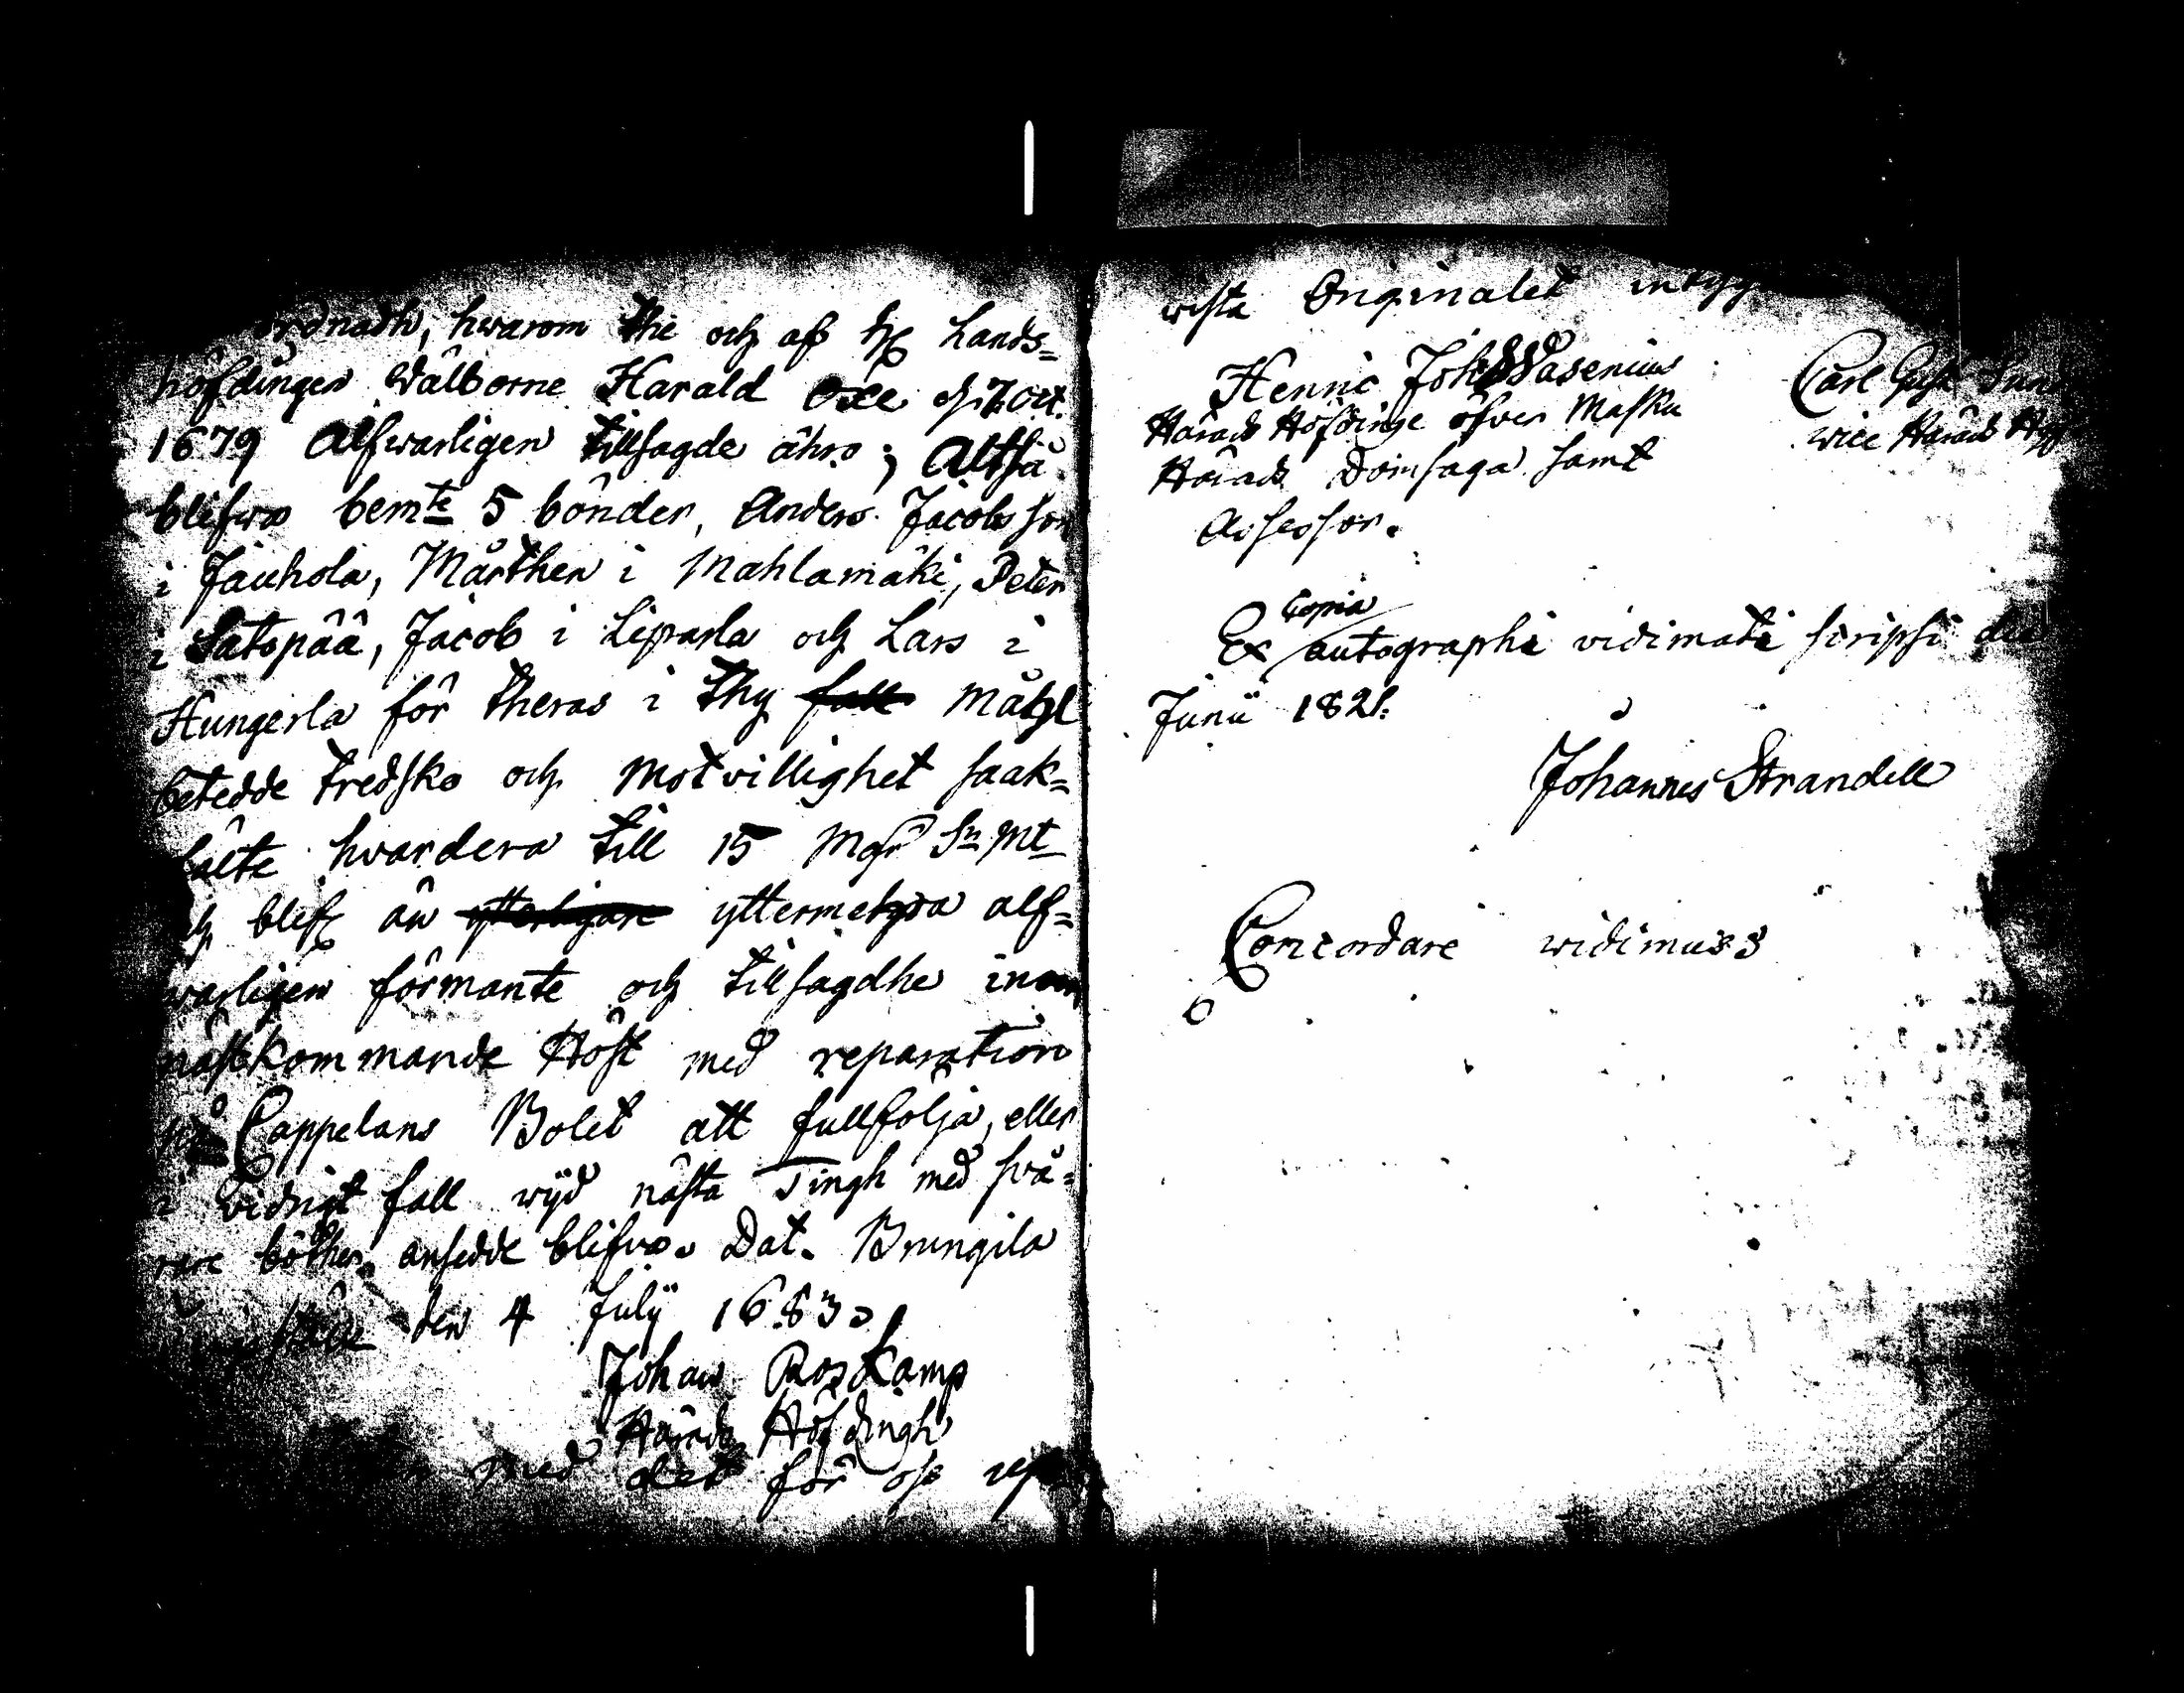 hwarom the och af H. Lands=
höfdingen Wälborne Harald Oxe d. 7 Oct.
1679 Alfwarligen tillsagde ähro; Altså
blifwa bemte 5 bönder, Anders Jacobsson
i Jauhola, Mårthen i Mahlamäki, Peter
i Satopää, Jacob i Liparla och Lars i
Hungerla för theras i thy fall måhl
betedde tredsko och motvillighet saak=
fälte hvardera till 15 Mr Sr Mt
och blef än ytterligare yttermehra alf=
warligen förmante och tillsagdhe inom
nästkommande Höst med reparation
på Cappelans Bolet att fullfölja, eller
i widrigt fall wijd nästa Tingh med swå=
rare böther ansedde blifwa. Dat. Brungila
den 4 Julij 1683.
Johan Roskamp
Härads Höfdingh
med det för oss
wista Originalet
Henric Joh. Wasenius
Härads Höfdinge öfver Masku
Härads Domsaga samt
Assessor.
Carl Gust.
vice Härads
copia
Ex autographi vidimati scripsi die
Junii 1821.
Johannes Strandell
Concordare widimus